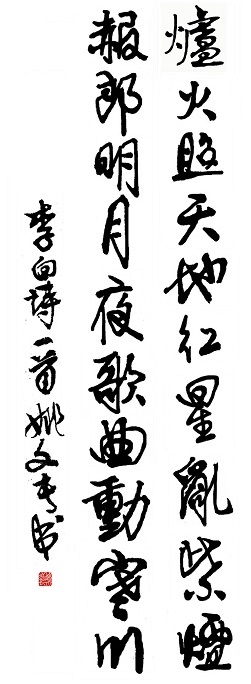 爐火照天地紅星亂紫煙
赧郎明月夜歌曲動寒川
李白詩一首姚文书